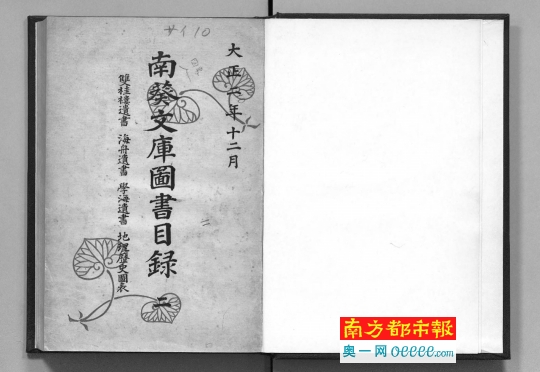 サイ10
大正六年十二月
南葵文庫圖書目録 二
雙桂樓遺書 海舟遺書 學海遺書 地理歷史圖表
南方都市報
奥一网 oeeee.com